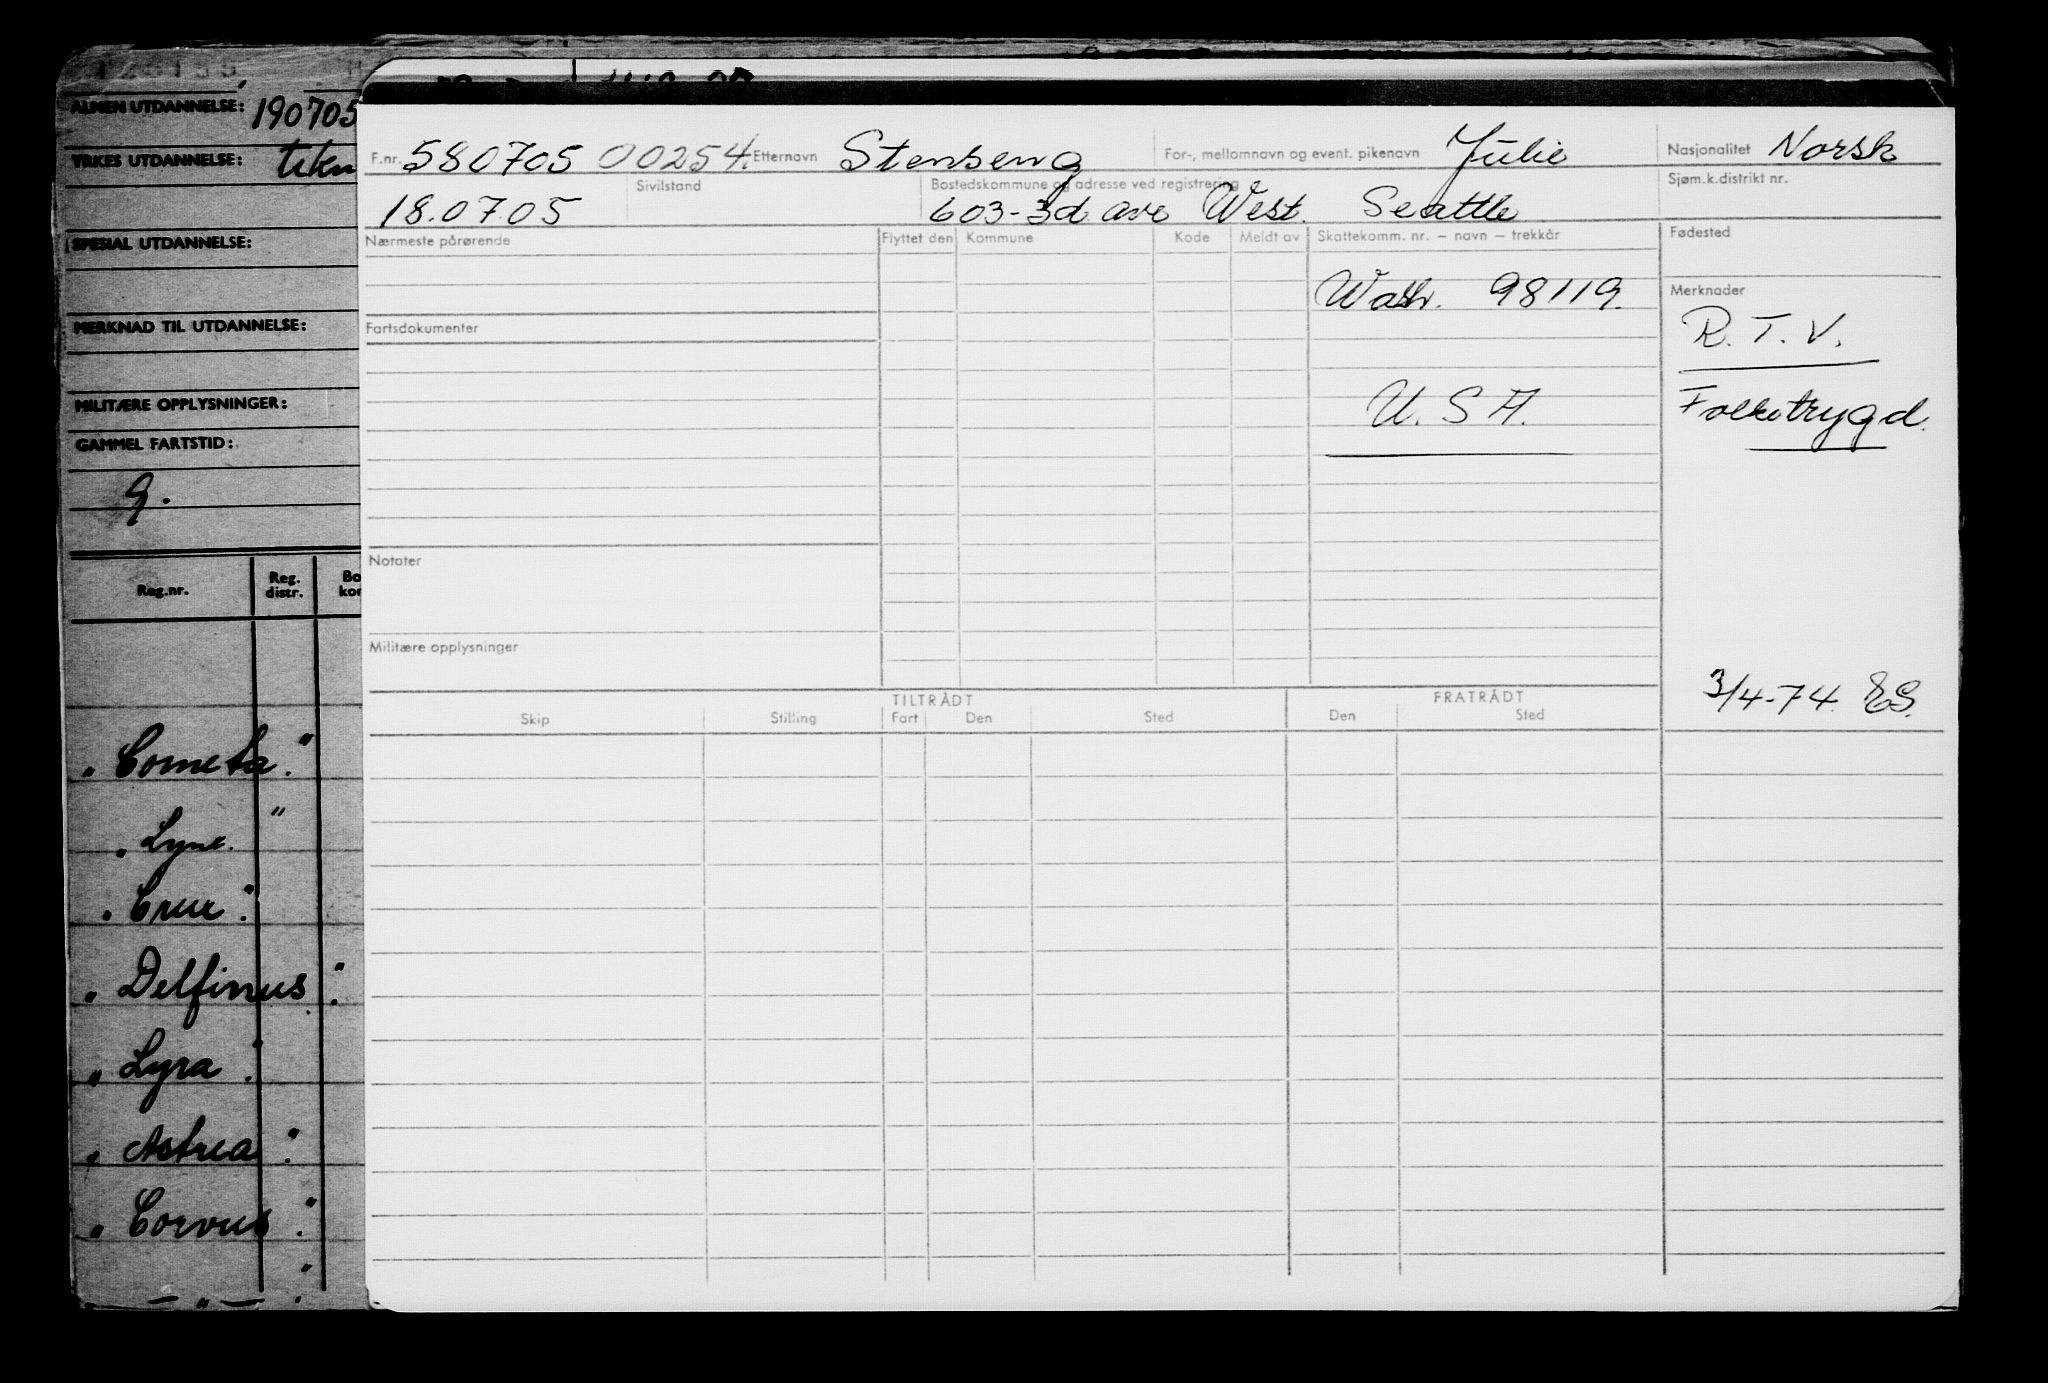 ALMEN UTDANNELSE: 190705
YRKES UTDANNELSE:
SPESIAL UTDANNELSE:
MERKNAD TIL UTDANNELSE:
MILITÆRE OPPLYSNINGER:
GAMMEL FARTSTID:
9.
Reg.nr. Reg. distr. Bo kor
"Cometa."
"Lynx."
"Crux".
"Delfinus".
"Lyra".
"Astrea".
"Corvus".
— " — "
F.nr. 580705 00254. Etternavn Stenseng For-, mellomnavn og event. pikenavn Julie Nasjonalitet Norsk
18.0705 Sivilstand Bostedskommune og adresse ved registrering 603-3d ave West. Seattle Sjøm.k.distrikt nr.
Nærmeste pårørende Flyttet den Kommune Kode Meldt av Skattekomm. nr. – navn – trekkår Fødested
Wash. 98119. Merknader
Fartsdokumenter R.T.V.
U.S.A. Folketrygd.
Notater
Militære opplysninger
3/4-74 ES.
TILTRÅDT FRATRÅDT
Skip Stilling Fart Den Sted Den Sted